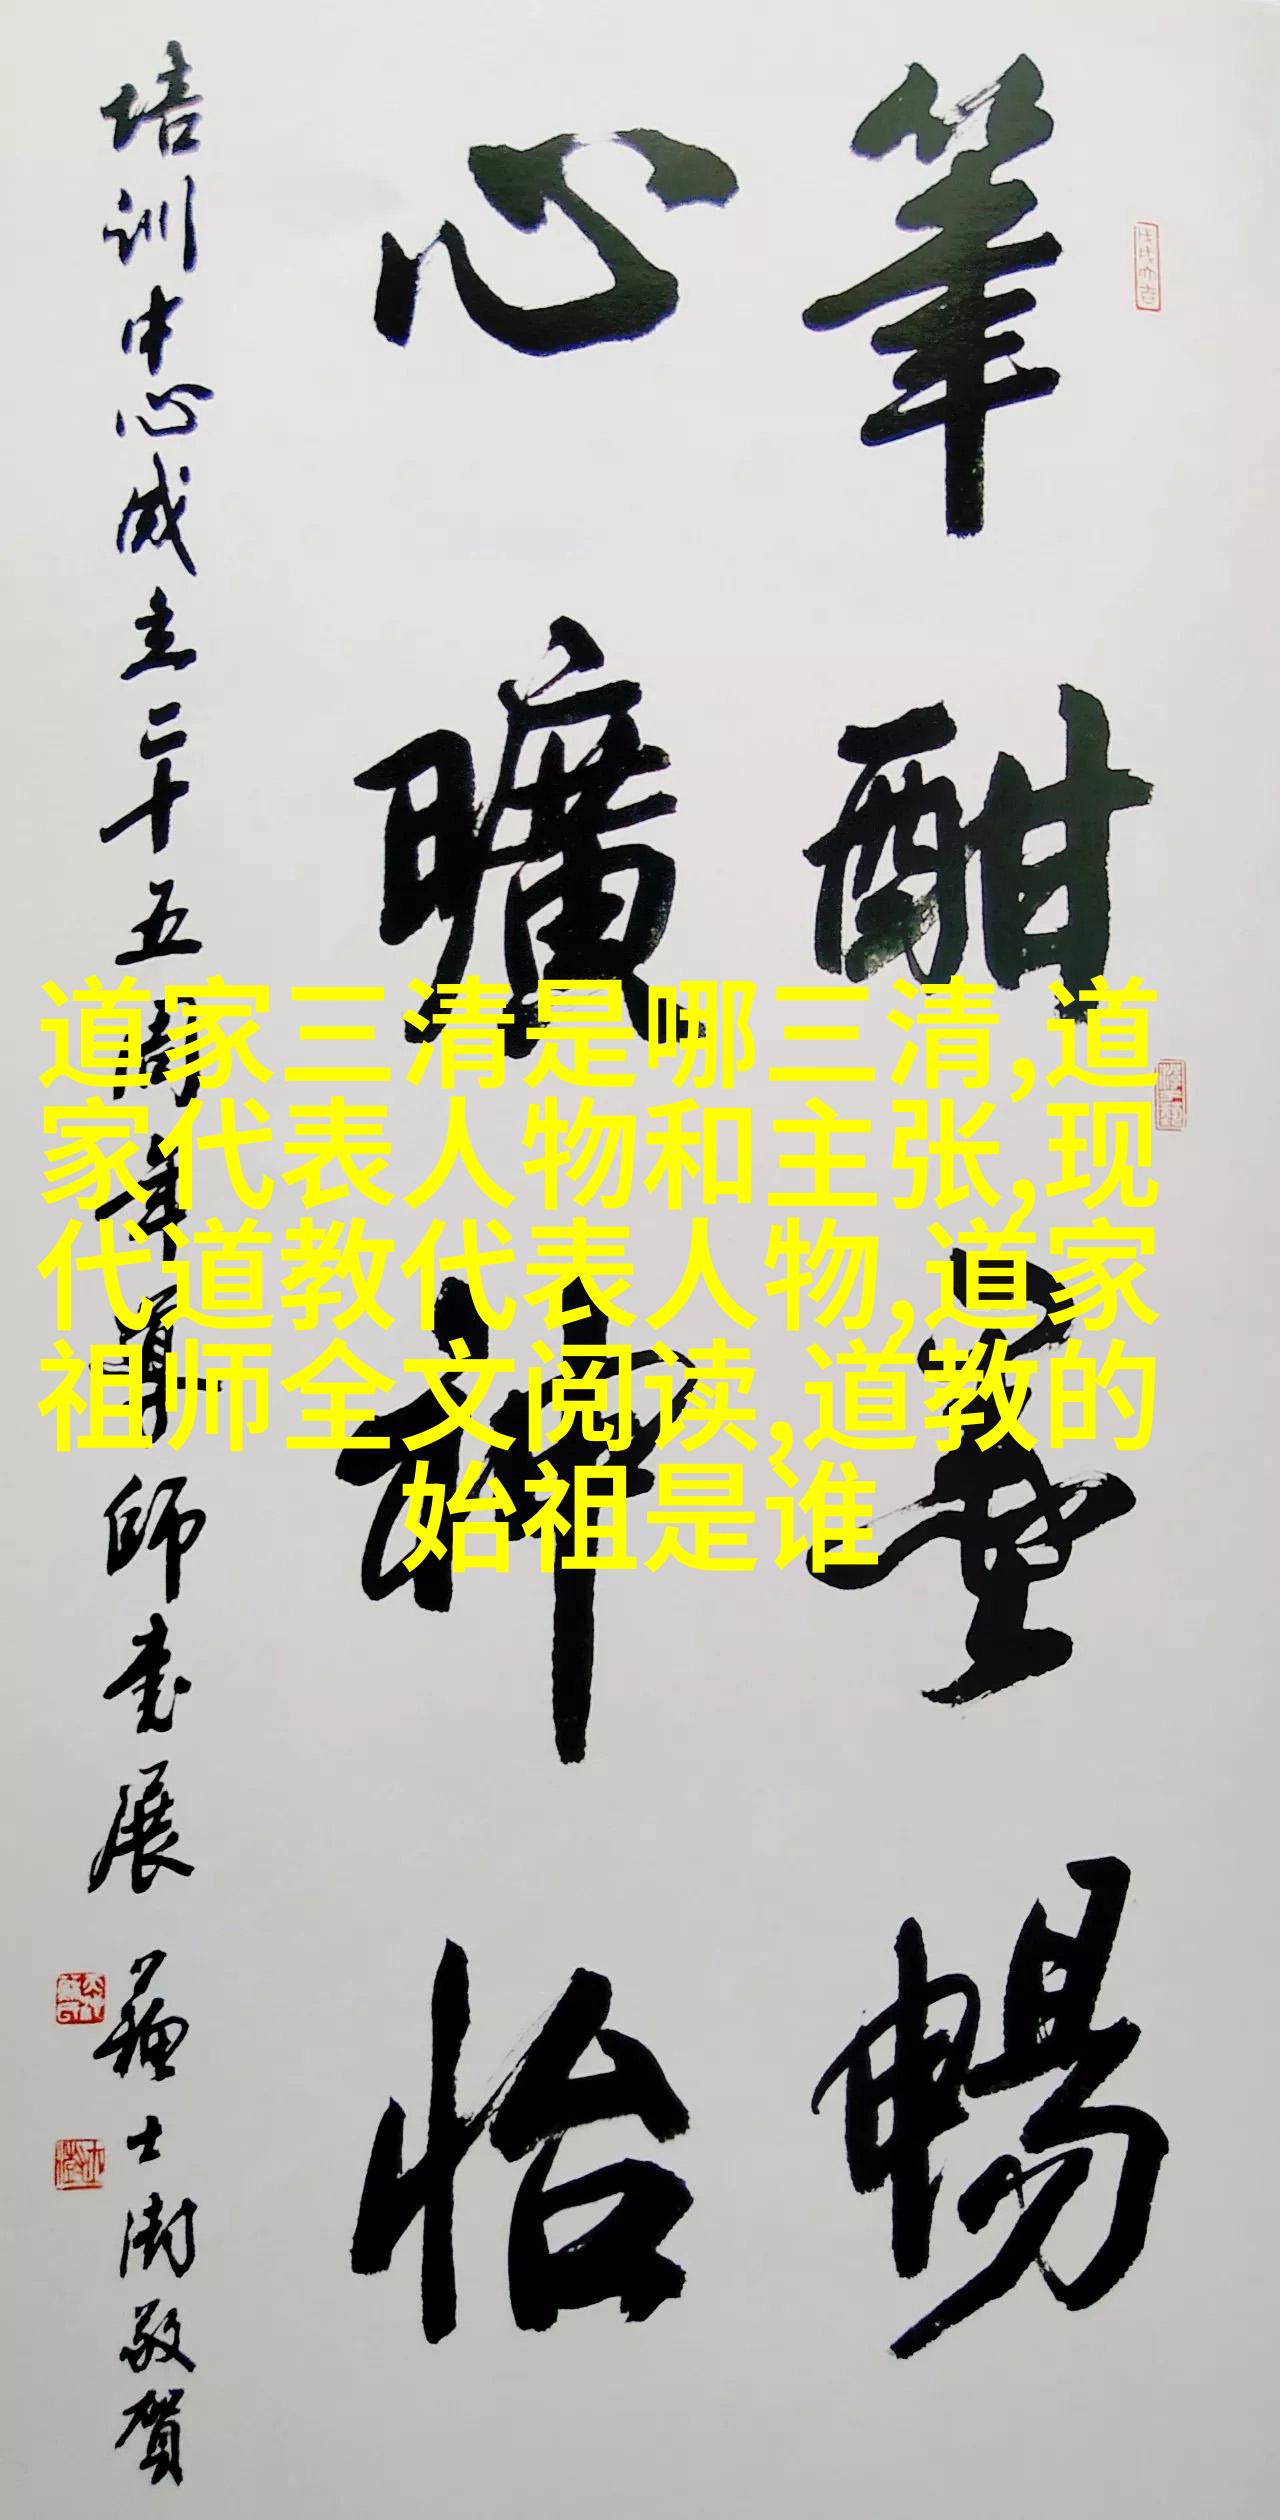 筆酣墨暢
心曠神怡
培训中心成立二十五周年暨师书展
道家三清是哪三清,道
家代表人物和主张,现
代道教代表人物,道家
祖师全文阅读,道教的
始祖是谁